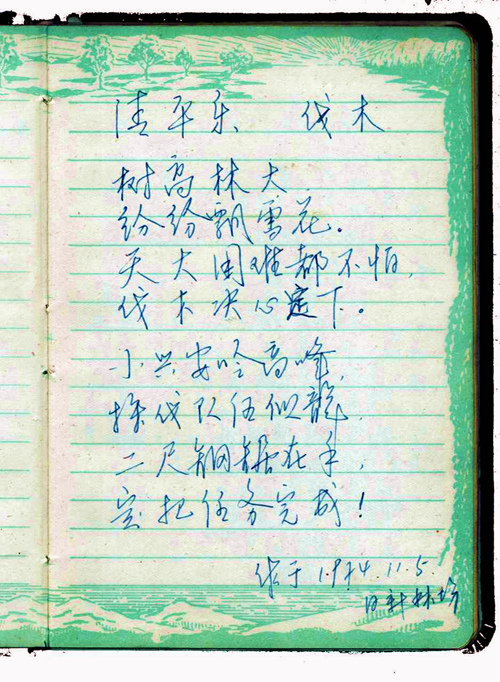 清平乐 伐木
树高林大
纷纷飘雪花。
天大困难都不怕,
伐木决心定下。
小兴安岭高峰,
採伐队伍似龍,
二尺钢锯在手,
定把任务完成!
作于 1974.11.5
日新林场